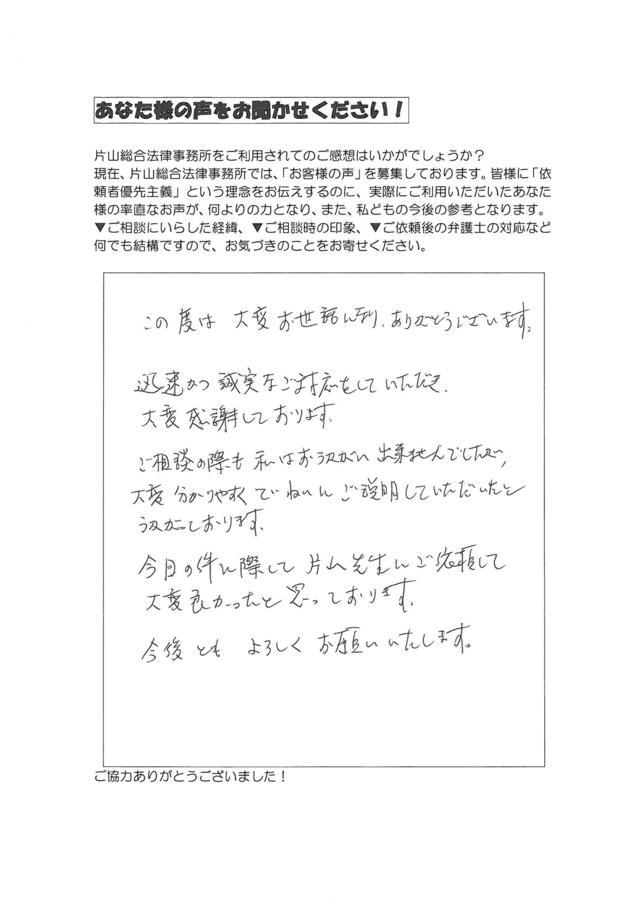 あなた様の声をお聞かせください！
片山総合法律事務所をご利用されてのご感想はいかがでしょうか？
現在、片山総合法律事務所では、「お客様の声」を募集しております。皆様に「依
頼者優先主義」という理念をお伝えするのに、実際にご利用いただいたあなた
様の率直なお声が、何よりの力となり、また、私どもの今後の参考となります。
▼ご相談にいらした経緯、▼ご相談時の印象、▼ご依頼後の弁護士の対応など
何でも結構ですので、お気づきのことをお寄せください。
この度は 大変お世話になり、ありがとうございます。
迅速かつ誠実なご対応をしていただき、
大変感謝しております。
ご相談の際も 私はおうかがい出来ませんでしたが、
大変分かりやすくていねいにご説明していただいたと
うかがっております。
今回の件に際して片山先生にご依頼して
大変良かったと思っております。
今後とも よろしく お願いいたします。
ご協力ありがとうございました！